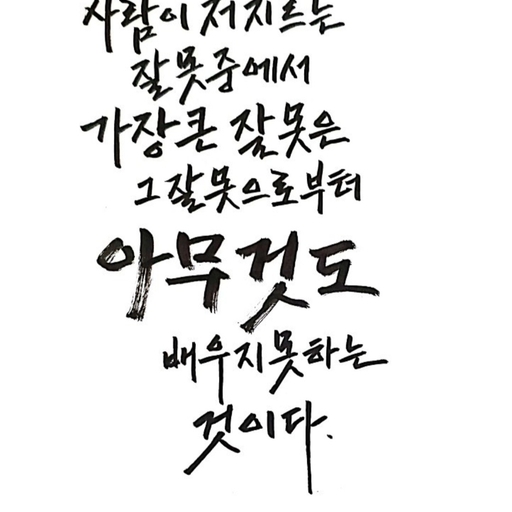 사람이 저지르는
잘못중에서
가장 큰 잘못은
그 잘못으로부터
아무것도
배우지못하는
것이다.